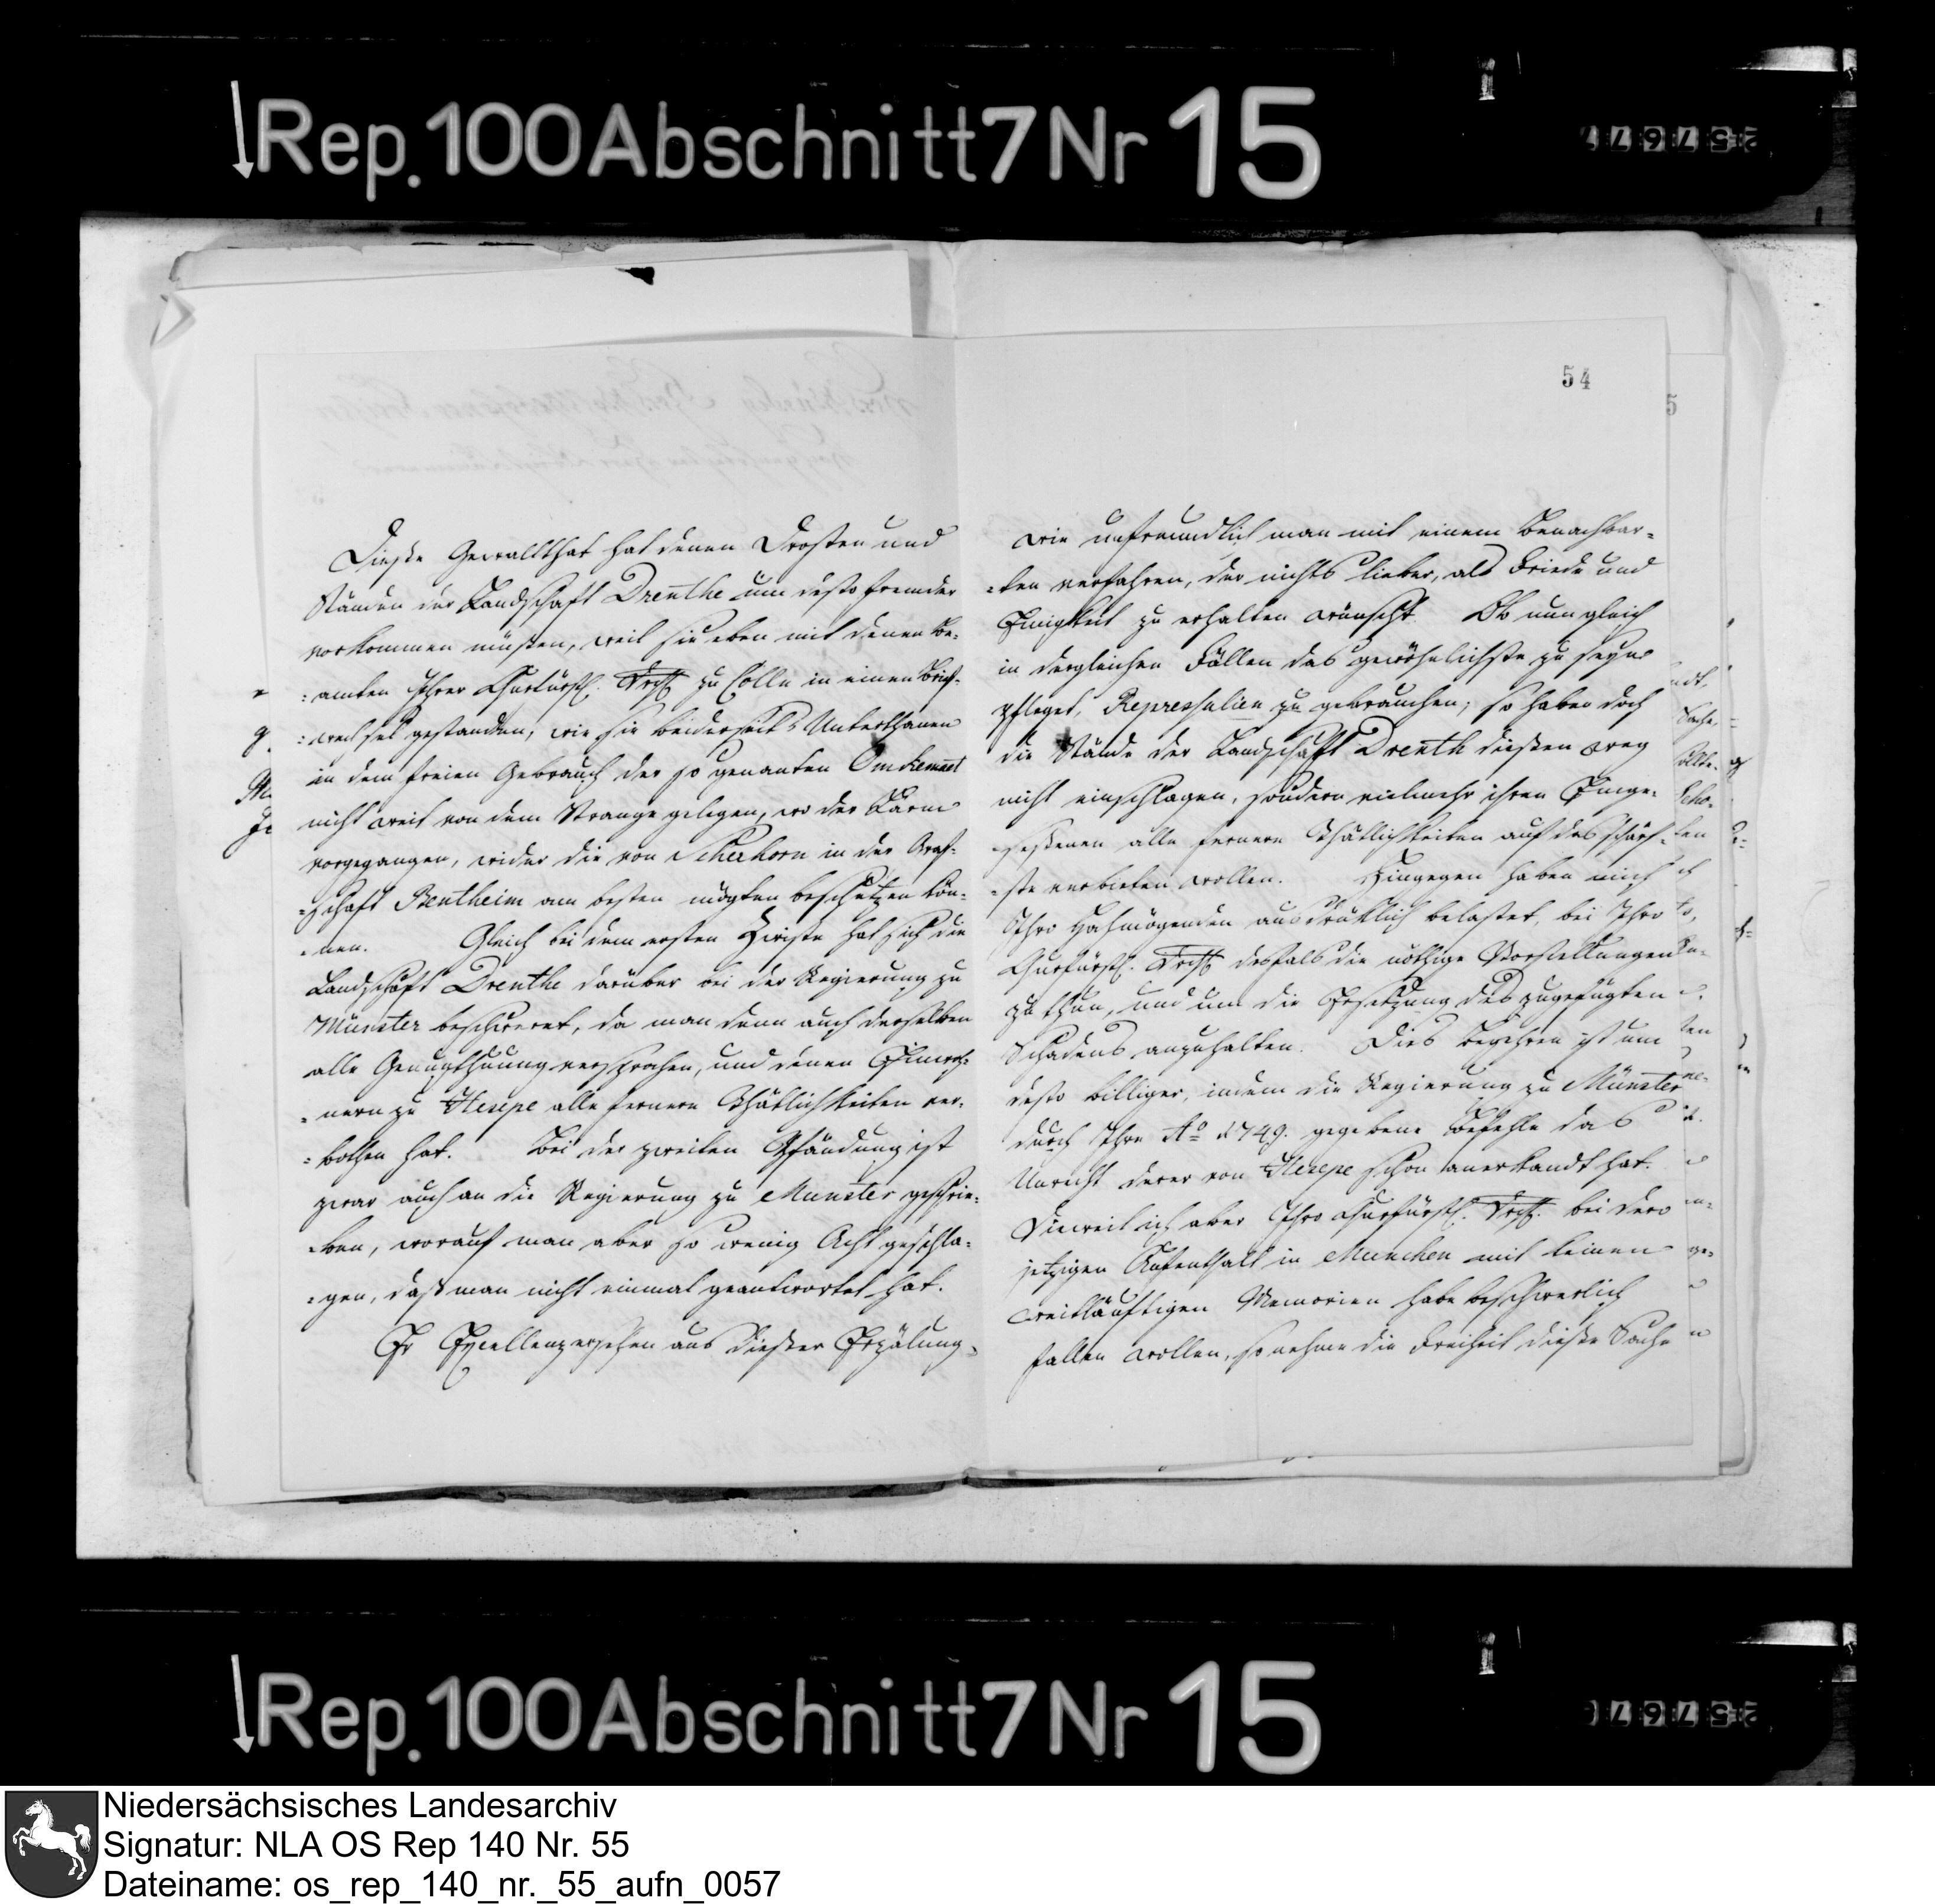 Rep. 100 Abschnitt 7 Nr 15
54
5
Dieße Gewallthat hat denen Drosten und
Ständen der Landschaft Drenthe um desto fremder
vorkommen müßen, weil sie eben mit denen Be-
:amten Ihrer Churfürstl. Drchl. zu Cölln in einen Brief-
:wechsel gestanden, wie sie beiderseits Unterthanen
in dem freien Gebrauch der so genanten
nicht weit von dem Strange gelegen, wo der Lärm
vorgegangen, wider die von Scherhorn in der Graf-
-schaft Bentheim am besten mögten beschützen kön-
-nen. Gleich bei dem ersten Zwiste hat sich die
Landschaft Drenthe darüber bei der Regierung zu
Münster beschweret, da man denn auch derselben
alle Genugthuung versprochen, und denen Einwoh-
-nern zu Hesepe alle fernere Thätlichkeiten ver-
-bothen hat. Bei der zweiten Pfändung ist
zwar auch an die Regierung zu Münster geschrie-
-ben, worauf man aber so wenig Acht geschla-
-gen, daß man nicht einmal geantwortet hat.
Ew Excellenz ersehen aus dießer Erzälung,
wie unfreundlich man mit einem Benachbar-
-ten verfahren, der nichts lieber, als Friede und
Einigkeit zu erhalten wünscht. Ob nun gleich
in dergleichen Fällen das gewöhnlichste zu seyn
pfleget, Repressalien zu gebrauchen; so haben doch
die Stände der Landschafft Drenth dießen Weg
nicht einschlagen, sondern vielmehr ihren Einge-
-seßenen alle fernere Thätlichkeiten auf das schärf-
-ste verbieten wollen. Hingegen haben mich
Ihro Hochmögenden ausdrüklich belastet, bei Ihro
Churfürstl. Drchl. desfals die nöthige Vorstellungen
zu thun, und um die Ersetzung des zugefügten
Schadens anzuhalten. Dies Begehren ist um
desto billiger, indem die Regierung zu Münster
durch Ihre Ao 1749. gegebene Befehle das
Unrecht derer von Hesepe schon anerkandt hat.
Dieweil ich aber Ihro Churfürstl. Drchl. bei dero
jetzigen Aufenthalt in München mit keinen
weitläuftigen Memorien habe beschwerlich
fallen wollen, so nehme die Freiheit dieße Sache
Rep. 100 Abschnitt 7 Nr 15
Niedersächsisches Landesarchiv
Signatur: NLA OS Rep 140 Nr. 55
Dateiname: os_rep_140_nr._55_aufn_0057